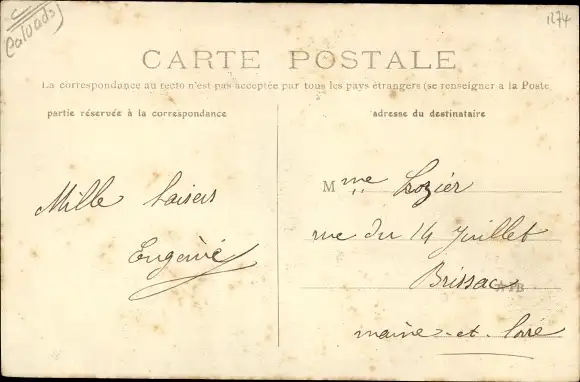 (Calvados)
1274
CARTE POSTALE
La correspondance au recto n'est pas acceptée par tous les pays étrangers (se renseigner a la Poste
partie réservée à la correspondance
adresse du destinataire
Mille baisers
Eugénie
Mme Lozier
rue du 14 Juillet
Brissac
maine-et-loire